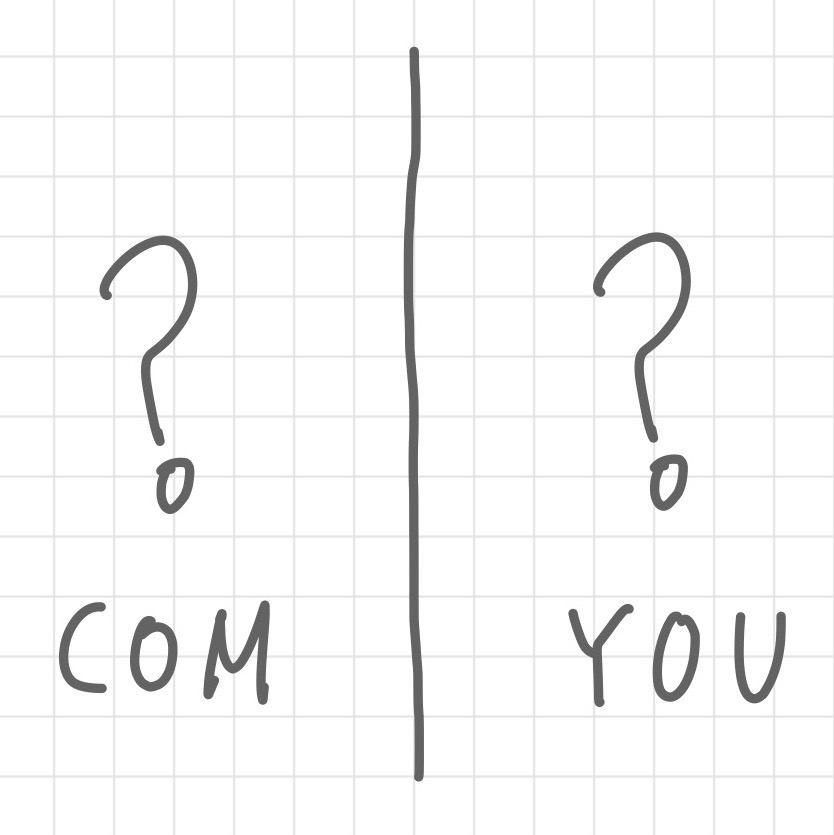 ? ?
COM YOU